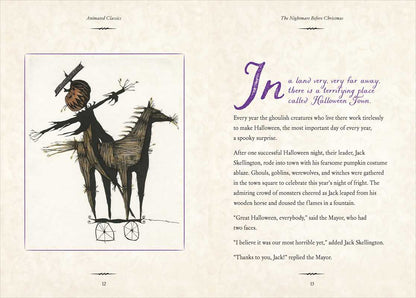 Animated Classics
The Nightmare Before Christmas
In a land very, very far away,
there is a terrifying place
called Halloween Town.
Every year the ghoulish creatures who live there work tirelessly
to make Halloween, the most important day of every year,
a spooky surprise.
After one successful Halloween night, their leader, Jack
Skellington, rode into town with his fearsome pumpkin costume
ablaze. Ghouls, goblins, werewolves, and witches were gathered
in the town square to celebrate this year's night of fright. The
admiring crowd of monsters cheered as Jack leaped from his
wooden horse and doused the flames in a fountain.
"Great Halloween, everybody," said the Mayor, who had
two faces.
"I believe it was our most horrible yet," added Jack Skellington.
"Thanks to you, Jack!" replied the Mayor.
12
13